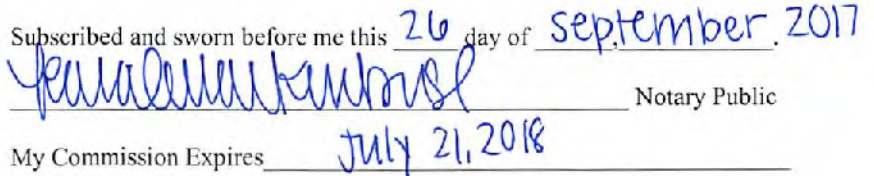 Subscribed and sworn before me this 26 day of September. 2017
Notary Public
My Commission Expires July 21, 2018